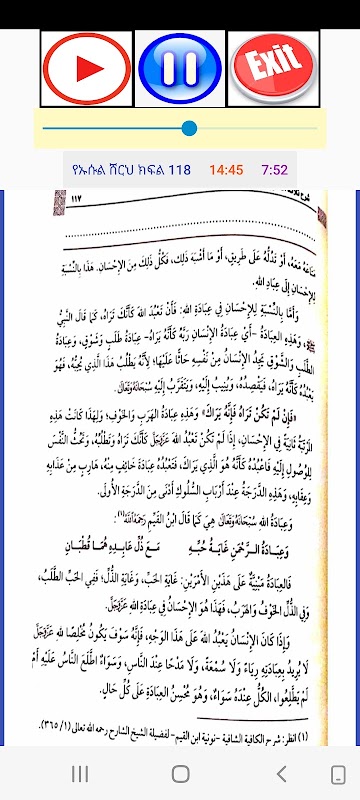 Exit
የኡሱል ሸርህ ክፍል 118 14:45 7:52
١١٧
مَتَاعَهُ مَعَهُ، أَوْ تَدُلَّهُ عَلَى طَرِيقٍ، أَوْ مَا أَشْبَهَ ذَلِكَ، فَكُلُّ ذَلِكَ مِنَ الإِحْسَانِ. هَذَا بِالنِّسْبَةِ
لِلإِحْسَانِ إِلَى عِبَادِ اللهِ.
وَأَمَّا بِالنِّسْبَةِ لِلإِحْسَانِ فِي عِبَادَةِ اللهِ: فَأَنْ تَعْبُدَ اللهَ كَأَنَّكَ تَرَاهُ، كَمَا قَالَ النَّبِيُّ
ﷺ، وَهَذِهِ العِبَادَةُ -أَيْ عِبَادَةُ الإِنْسَانِ رَبَّهُ كَأَنَّهُ يَرَاهُ- عِبَادَةُ طَلَبٍ وَشَوْقٍ، وَعِبَادَةُ
الطَّلَبِ وَالشَّوْقِ يَجِدُ الإِنْسَانُ مِنْ نَفْسِهِ حَاثًّا عَلَيْهَا؛ لِأَنَّهُ يَطْلُبُ هَذَا الَّذِي يُحِبُّهُ، فَهُوَ
يَعْبُدُهُ كَأَنَّهُ يَرَاهُ، فَيَقْصِدُهُ، وَيُنِيبُ إِلَيْهِ، وَيَتَقَرَّبُ إِلَيْهِ سُبْحَانَهُ وَتَعَالَى.
«فَإِنْ لَمْ تَكُنْ تَرَاهُ فَإِنَّهُ يَرَاكَ» وَهَذِهِ عِبَادَةُ الهَرَبِ وَالخَوْفِ؛ وَلِهَذَا كَانَتْ هَذِهِ
المَرْتَبَةُ ثَانِيَةً فِي الإِحْسَانِ، إِذَا لَمْ تَكُنْ تَعْبُدُ اللهَ عَزَّوَجَلَّ كَأَنَّكَ تَرَاهُ وَتَطْلُبُهُ، وَتَحُثُّ النَّفْسَ
لِلْوُصُولِ إِلَيْهِ فَاعْبُدْهُ كَأَنَّهُ هُوَ الَّذِي يَرَاكَ، فَتَعْبُدُهُ عِبَادَةَ خَائِفٍ مِنْهُ، هَارِبٍ مِنْ عَذَابِهِ
وَعِقَابِهِ، وَهَذِهِ الدَّرَجَةُ عِنْدَ أَرْبَابِ السُّلُوكِ أَدْنَى مِنَ الدَّرَجَةِ الأُولَى.
وَعِبَادَةُ اللهِ سُبْحَانَهُ وَتَعَالَى هِيَ كَمَا قَالَ ابْنُ القَيِّمِ رَحِمَهُ اللهُ(١):
وَعِبَادَةُ الرَّحْمَنِ غَايَةُ حُبِّهِ مَعَ ذُلِّ عَابِدِهِ هُمَا قُطْبَانِ
فَالعِبَادَةُ مَبْنِيَّةٌ عَلَى هَذَيْنِ الأَمْرَيْنِ: غَايَةِ الحُبِّ، وَغَايَةِ الذُّلِّ؛ فَفِي الحُبِّ الطَّلَبُ،
وَفِي الذُّلِّ الخَوْفُ وَالهَرَبُ، فَهَذَا هُوَ الإِحْسَانُ فِي عِبَادَةِ اللهِ عَزَّوَجَلَّ.
وَإِذَا كَانَ الإِنْسَانُ يَعْبُدُ اللهَ عَلَى هَذَا الوَجْهِ، فَإِنَّهُ سَوْفَ يَكُونُ مُخْلِصًا للهِ عَزَّوَجَلَّ
لَا يُرِيدُ بِعِبَادَتِهِ رِيَاءً وَلَا سُمْعَةً، وَلَا مَدْحًا عِنْدَ النَّاسِ، وَسَوَاءٌ اطَّلَعَ النَّاسُ عَلَيْهِ أَمْ
لَمْ يَطَّلِعُوا، الكُلُّ عِنْدَهُ سَوَاءٌ، وَهُوَ مُحْسِنُ العِبَادَةِ عَلَى كُلِّ حَالٍ.
(١) انظر: شرح الكافية الشافية -نونية ابن القيم- لفضيلة الشيخ الشارح رحمه الله تعالى (١/ ٣٦٥).